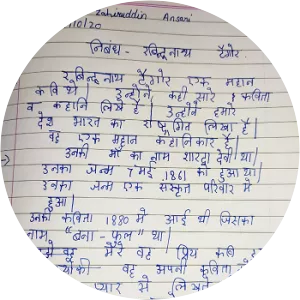 Zaheruddin Ansari
10/20
निबंध - रबिन्द्रनाथ टैगोर
रबिन्द्रनाथ टैगोर एक महान
कवि थे। उन्होंने कही सारे कविता
व कहानि लिखे है। उन्होंने हमारे
देश भारत का राष्ट्रगित लिखा है।
वह एक महान कहानिकार है।
उनकी माँ का नाम शारदा देवी था।
उनका जन्म 7 मई 1861 को हुआ था।
उनका जन्म एक संस्कृत परिवार मे
हुआ।
उनका कविता 1880 मे आई थी जिसका
नाम "बना-फूल" था।
वह मेरे प्रिय कवि
वह अपनी कविता
प्यार से लिखते